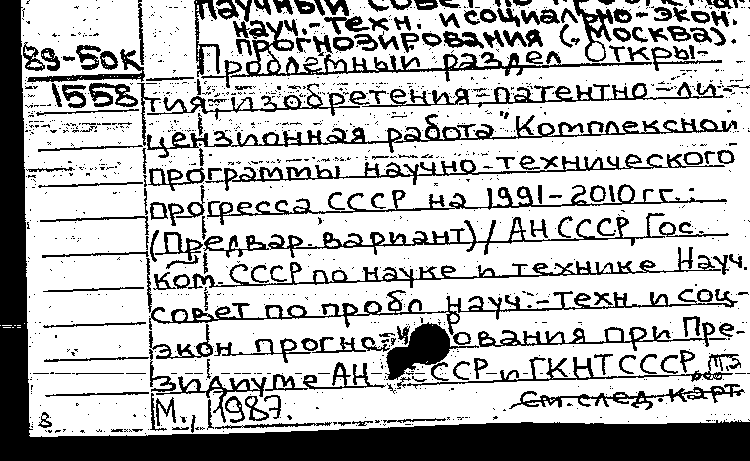 Научный совет по проблемам
науч.-техн. и социально-экон.
прогнозирования (Москва).
89-50к
1558
Проблемный раздел Откры-
тия, изобретения, патентно-ли-
цензионная работа "Комплексной
программы научно-технического
прогресса СССР на 1991-2010 гг.:
(Предвар. вариант) / АН СССР, Гос.
ком. СССР по науке и технике Науч.
совет по пробл науч.-техн. и соц-
экон. прогнозирования при Пре-
зидиуме АН СССР и ГКНТ СССР.
М., 1987.
См. след. карт.
8